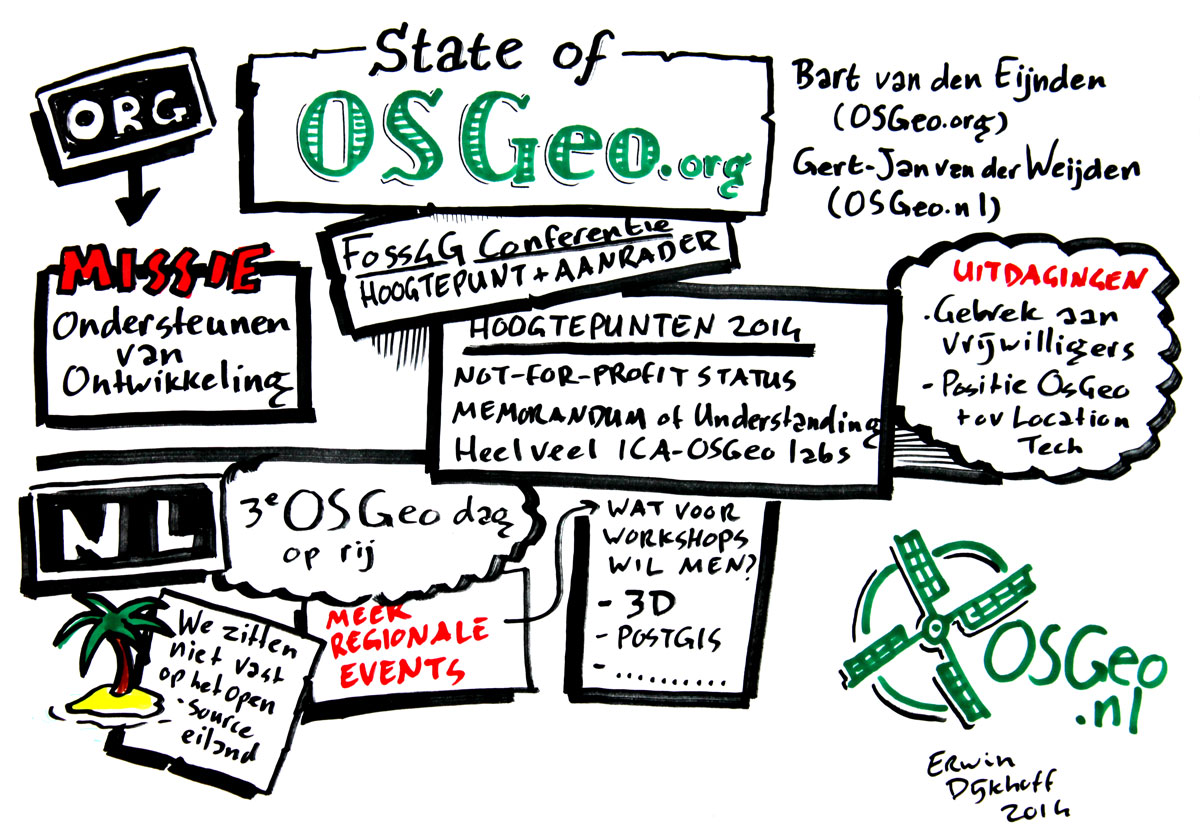 State of
OSGeo.org
ORG
Bart van den Eijnden
(OSGeo.org)
Gert-Jan van der Weijden
(OSGeo.nl)
Foss4G Conferentie
HOOGTEPUNT + AANRADER
MISSIE
Ondersteunen
van
Ontwikkeling
HOOGTEPUNTEN 2014
NOT-FOR-PROFIT STATUS
MEMORANDUM of Understanding
Heel veel ICA-OSGeo labs
UITDAGINGEN
.Gebrek aan
vrijwilligers
- Positie OsGeo
tov Location
Tech
NL
3e OSGeo dag
op rij
We zitten
niet vast
op het open
-source
eiland
MEER
REGIONALE
EVENTS
WAT VOOR
WORKSHOPS
WIL MEN?
- 3D
- POSTGIS
- .........
OSGeo
.nl
Erwin
Dijkhoff
2014